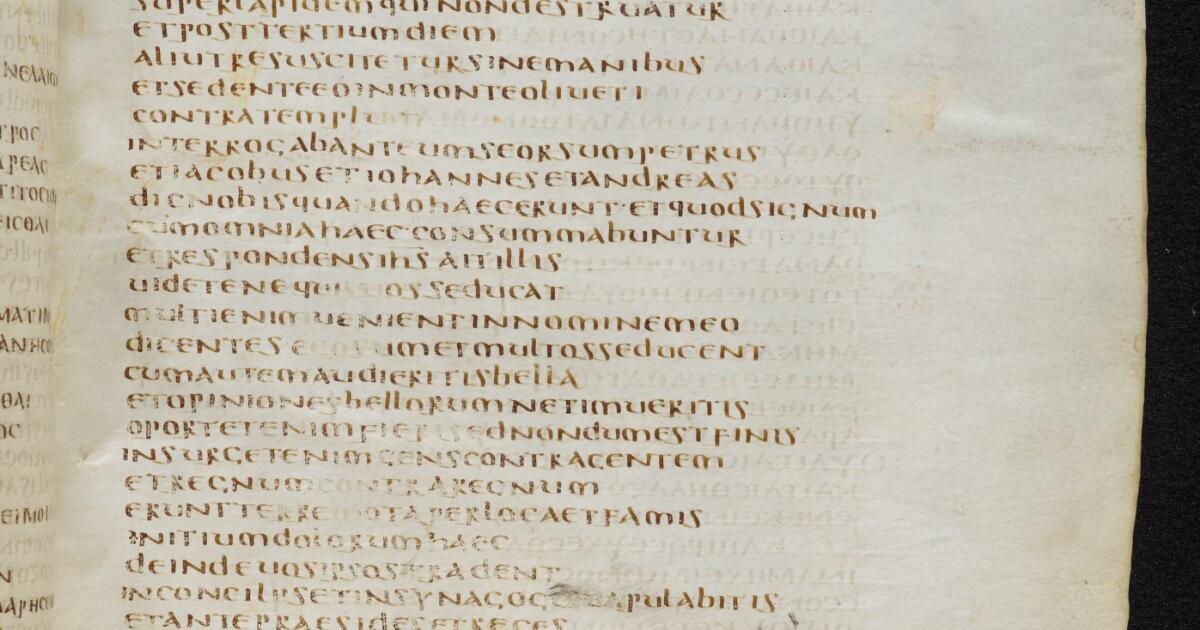 SUPERLAPIDEMQUINONDESTRUATUR
ETPOSTTERTIUMDIEM
ALIUTRESUSCITETURSINEMANIBUS
ETSEDENTEEOINMONTEOLIUETI
CONTRATEMPLUM
INTERROGABANTEUMSEORSUMPETRUS
ETIACOBUSETIOHANNESETANDREAS
DICNOBISQUANDOHAECERUNT·ETQUODSIGNUM
CUMOMNIAHAEC·CONSUMMABUNTUR
ETRESPONDENSIHSAITILLIS
UIDETENEQUISUOSSEDUCAT
MULTIENIMUENIENTINNOMINEMEO
DICENTESEGOSUMETMULTOSSEDUCENT
CUMAUTEMAUDIERITISBELLA
ETOPINIONESBELLORUMNETIMUERITIS
OPORTETENIMFIERISEDNONDUMESTFINIS
INSURGETENIMGENSCONTRAGENTEM
ETREGNUMCONTRAREGNUM
ERUNTTERREMOTAPERLOCAETFAMIS
INITIUMDOLORUMHAEC
DEINDEUOSIPSOSTRADENT
INCONCILIISETINSYNAGOG UAPULABITIS
ETANTEPRAESIDESETREGES
ΝΕΛΑΙΟ
ΜΑΤΙΝ
ΘΑΙ
ΕΙΜΟΙ